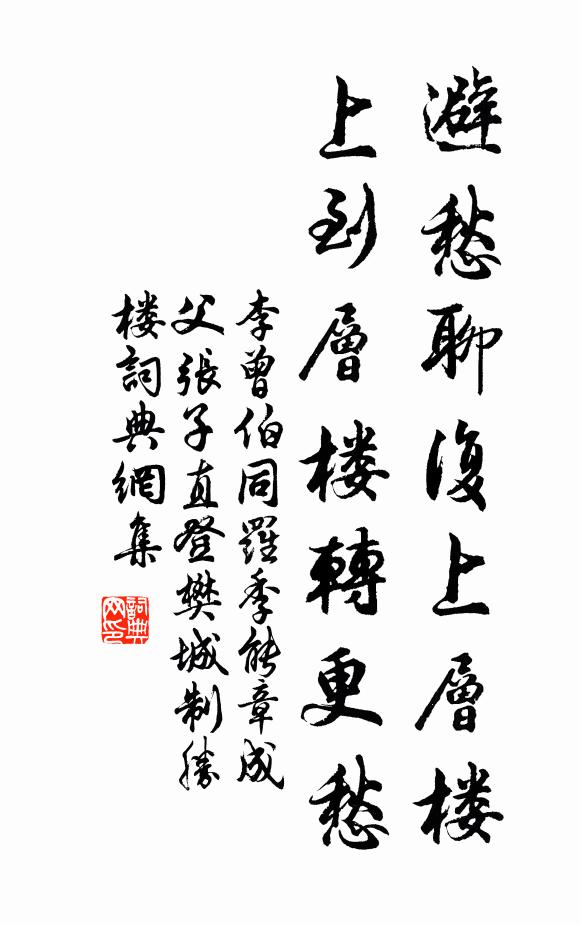 避愁聊復上層楼
上到層楼轉更愁
李曾伯同羅季能章成
父張子直登樊城制勝
楼詞典網集
詞典网印